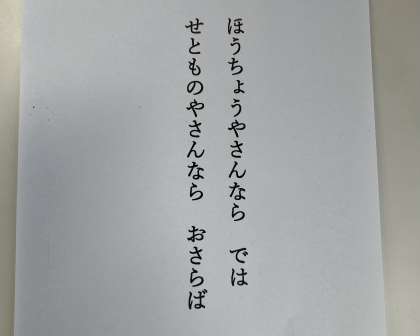 ほうちょうやさんなら　では
せとものやさんなら　おさらば